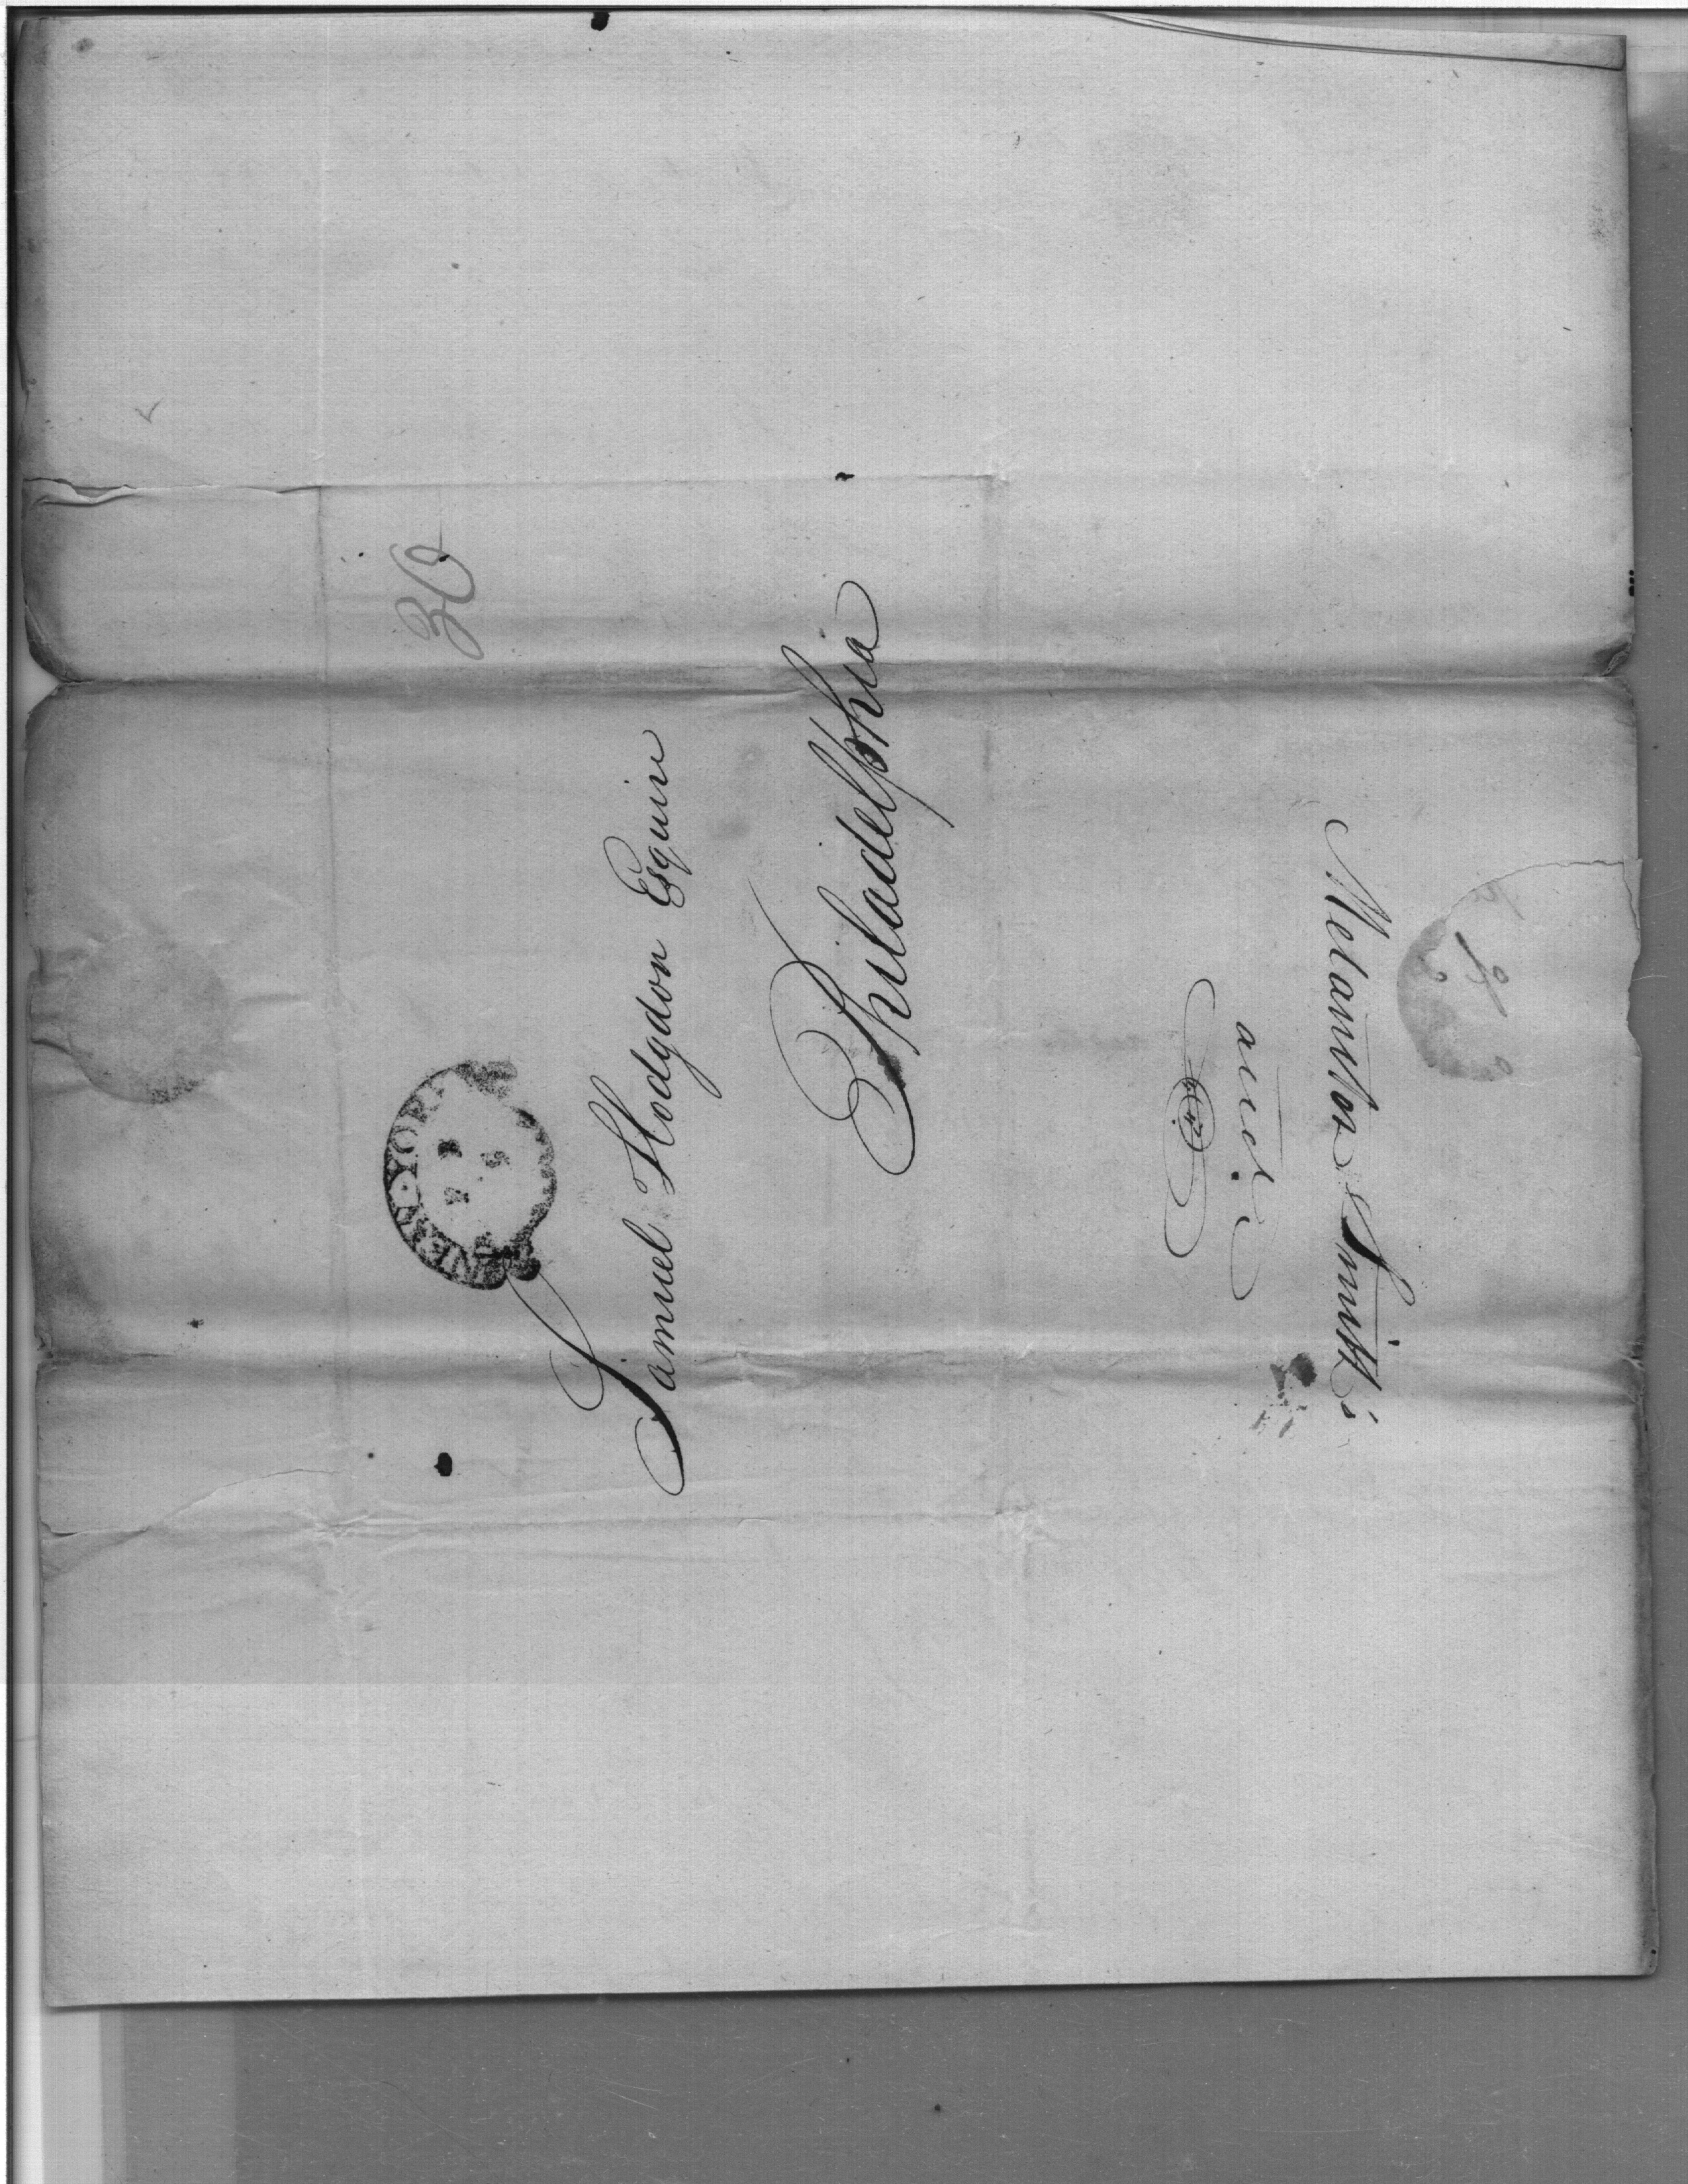 30
NEW·YORK
Samuel Hodgdon Esquire
Philadelphia
Melancton Smith's